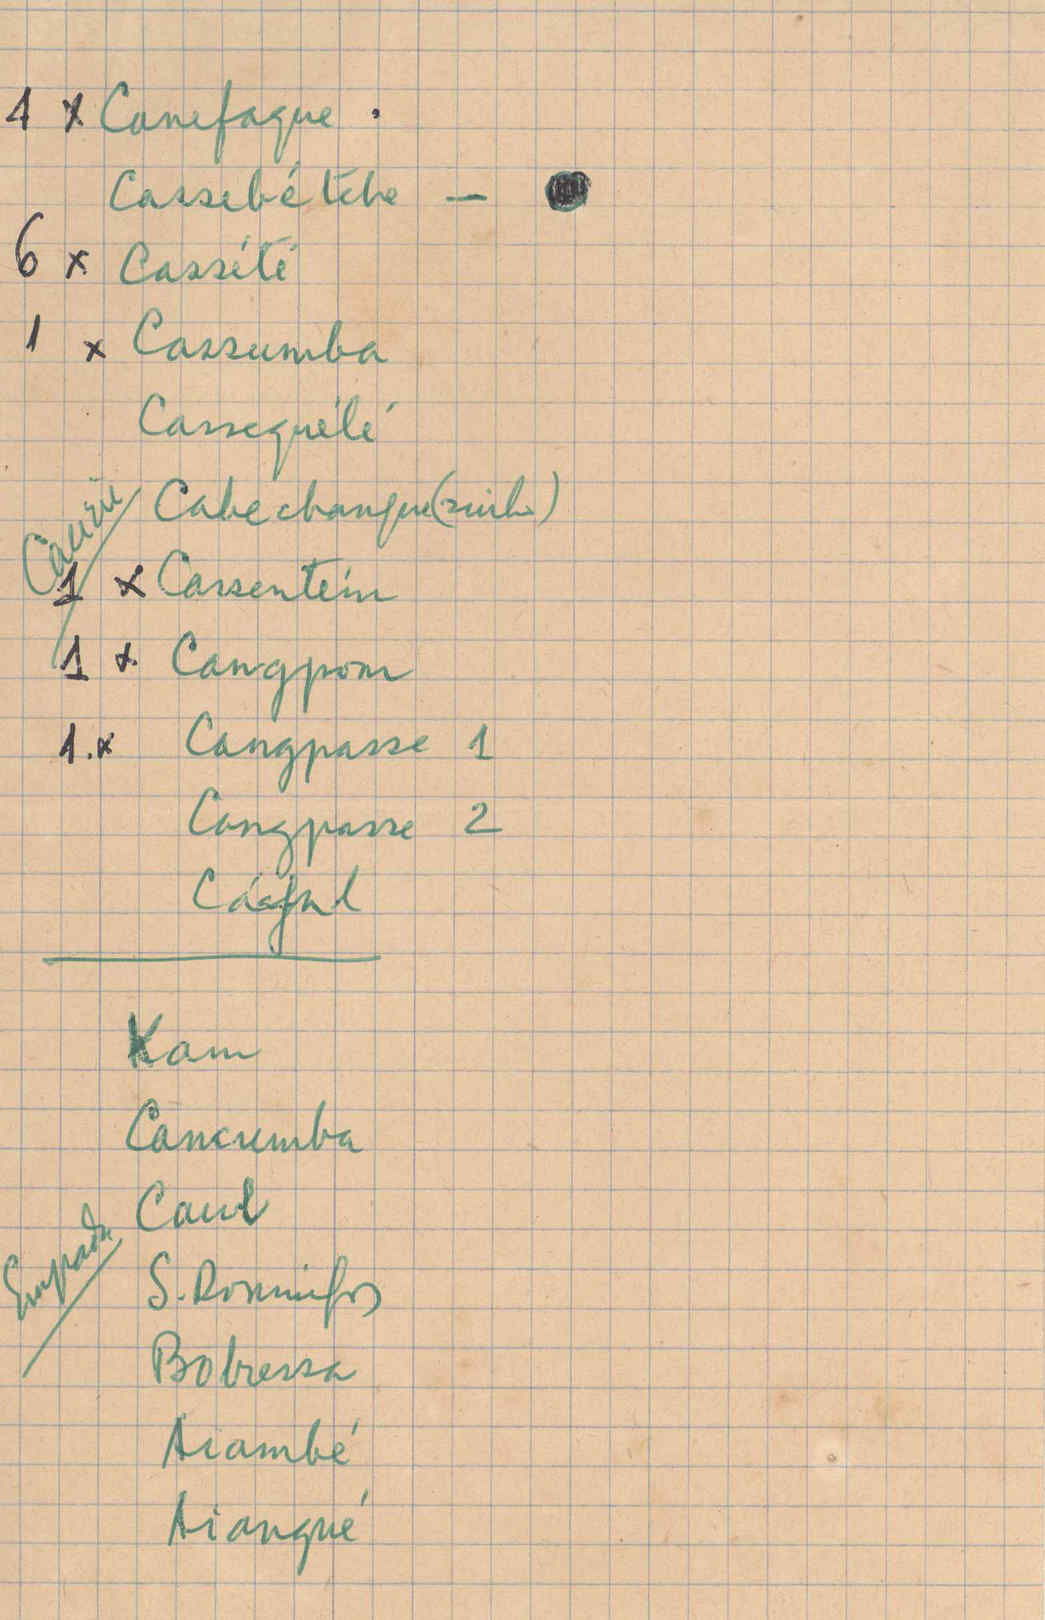 4 x Canefaque .
Cassebétche —
6 x Cassété
1 x Cassumba
Cassequélé
Cabechangue (zinho)
1 x Cassentem
1 x Cangpom
1. x Cangpasse 1
Cangpasse 2
Kam
Cancumba
Caur
S. Domingos
Bobressa
Aiambé
Aiangué
Empada